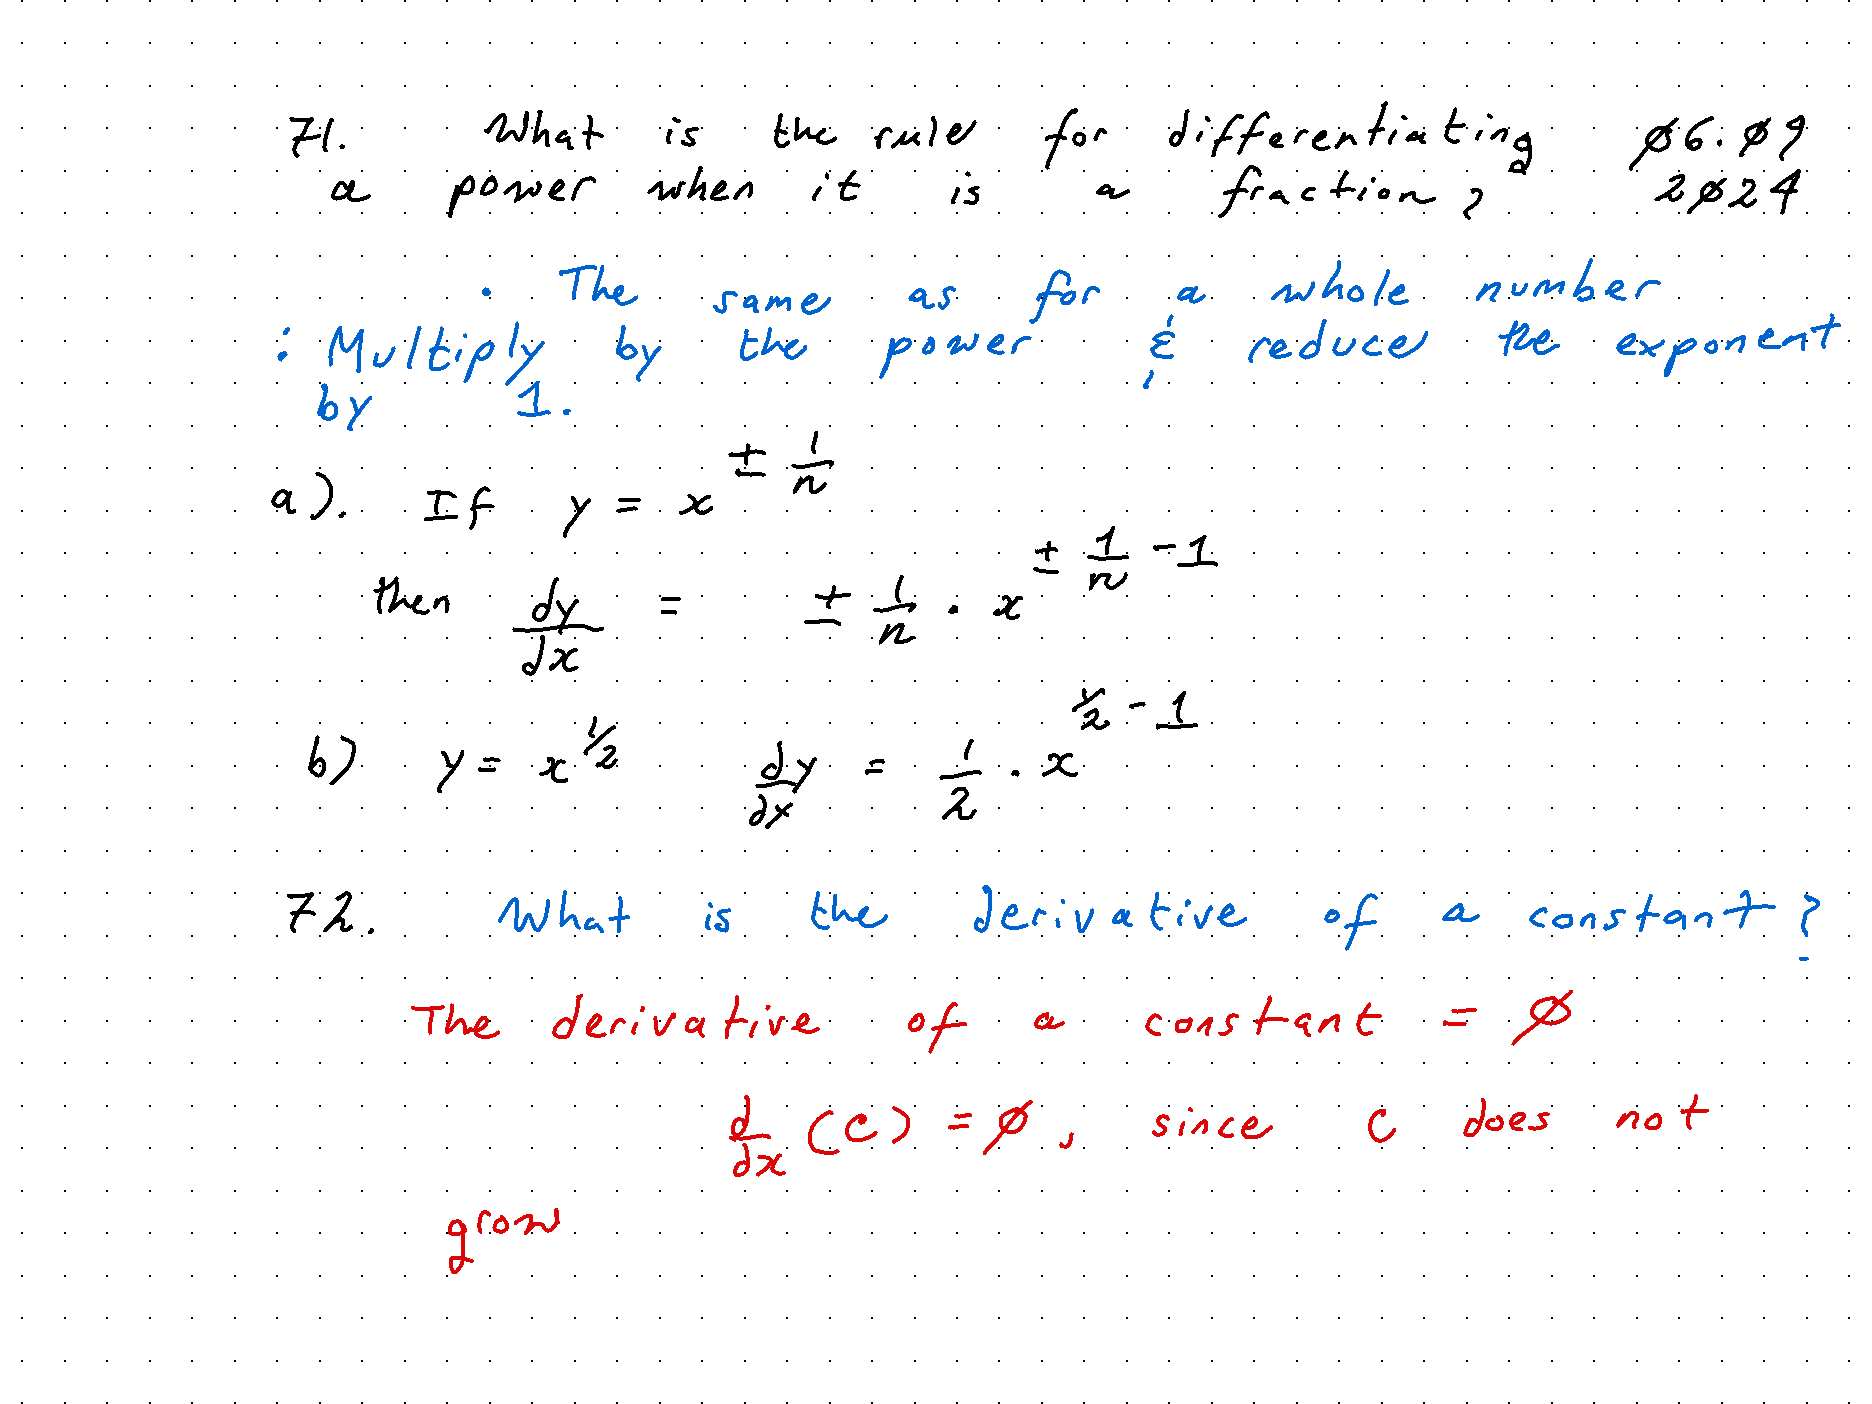 71. What is the rule for differentiating ø6.ø9
a power when it is a fraction? 2ø24
• The same as for a whole number
: Multiply by the power & reduce the exponent
by 1.
a). If y = x^(± 1/n)
then dy/dx = ± 1/n · x^(± 1/n - 1)
b) y = x^(1/2) dy/dx = 1/2 · x^(1/2 - 1)
72. What is the derivative of a constant?
The derivative of a constant = ø
d/dx (C) = ø, since C does not
grow